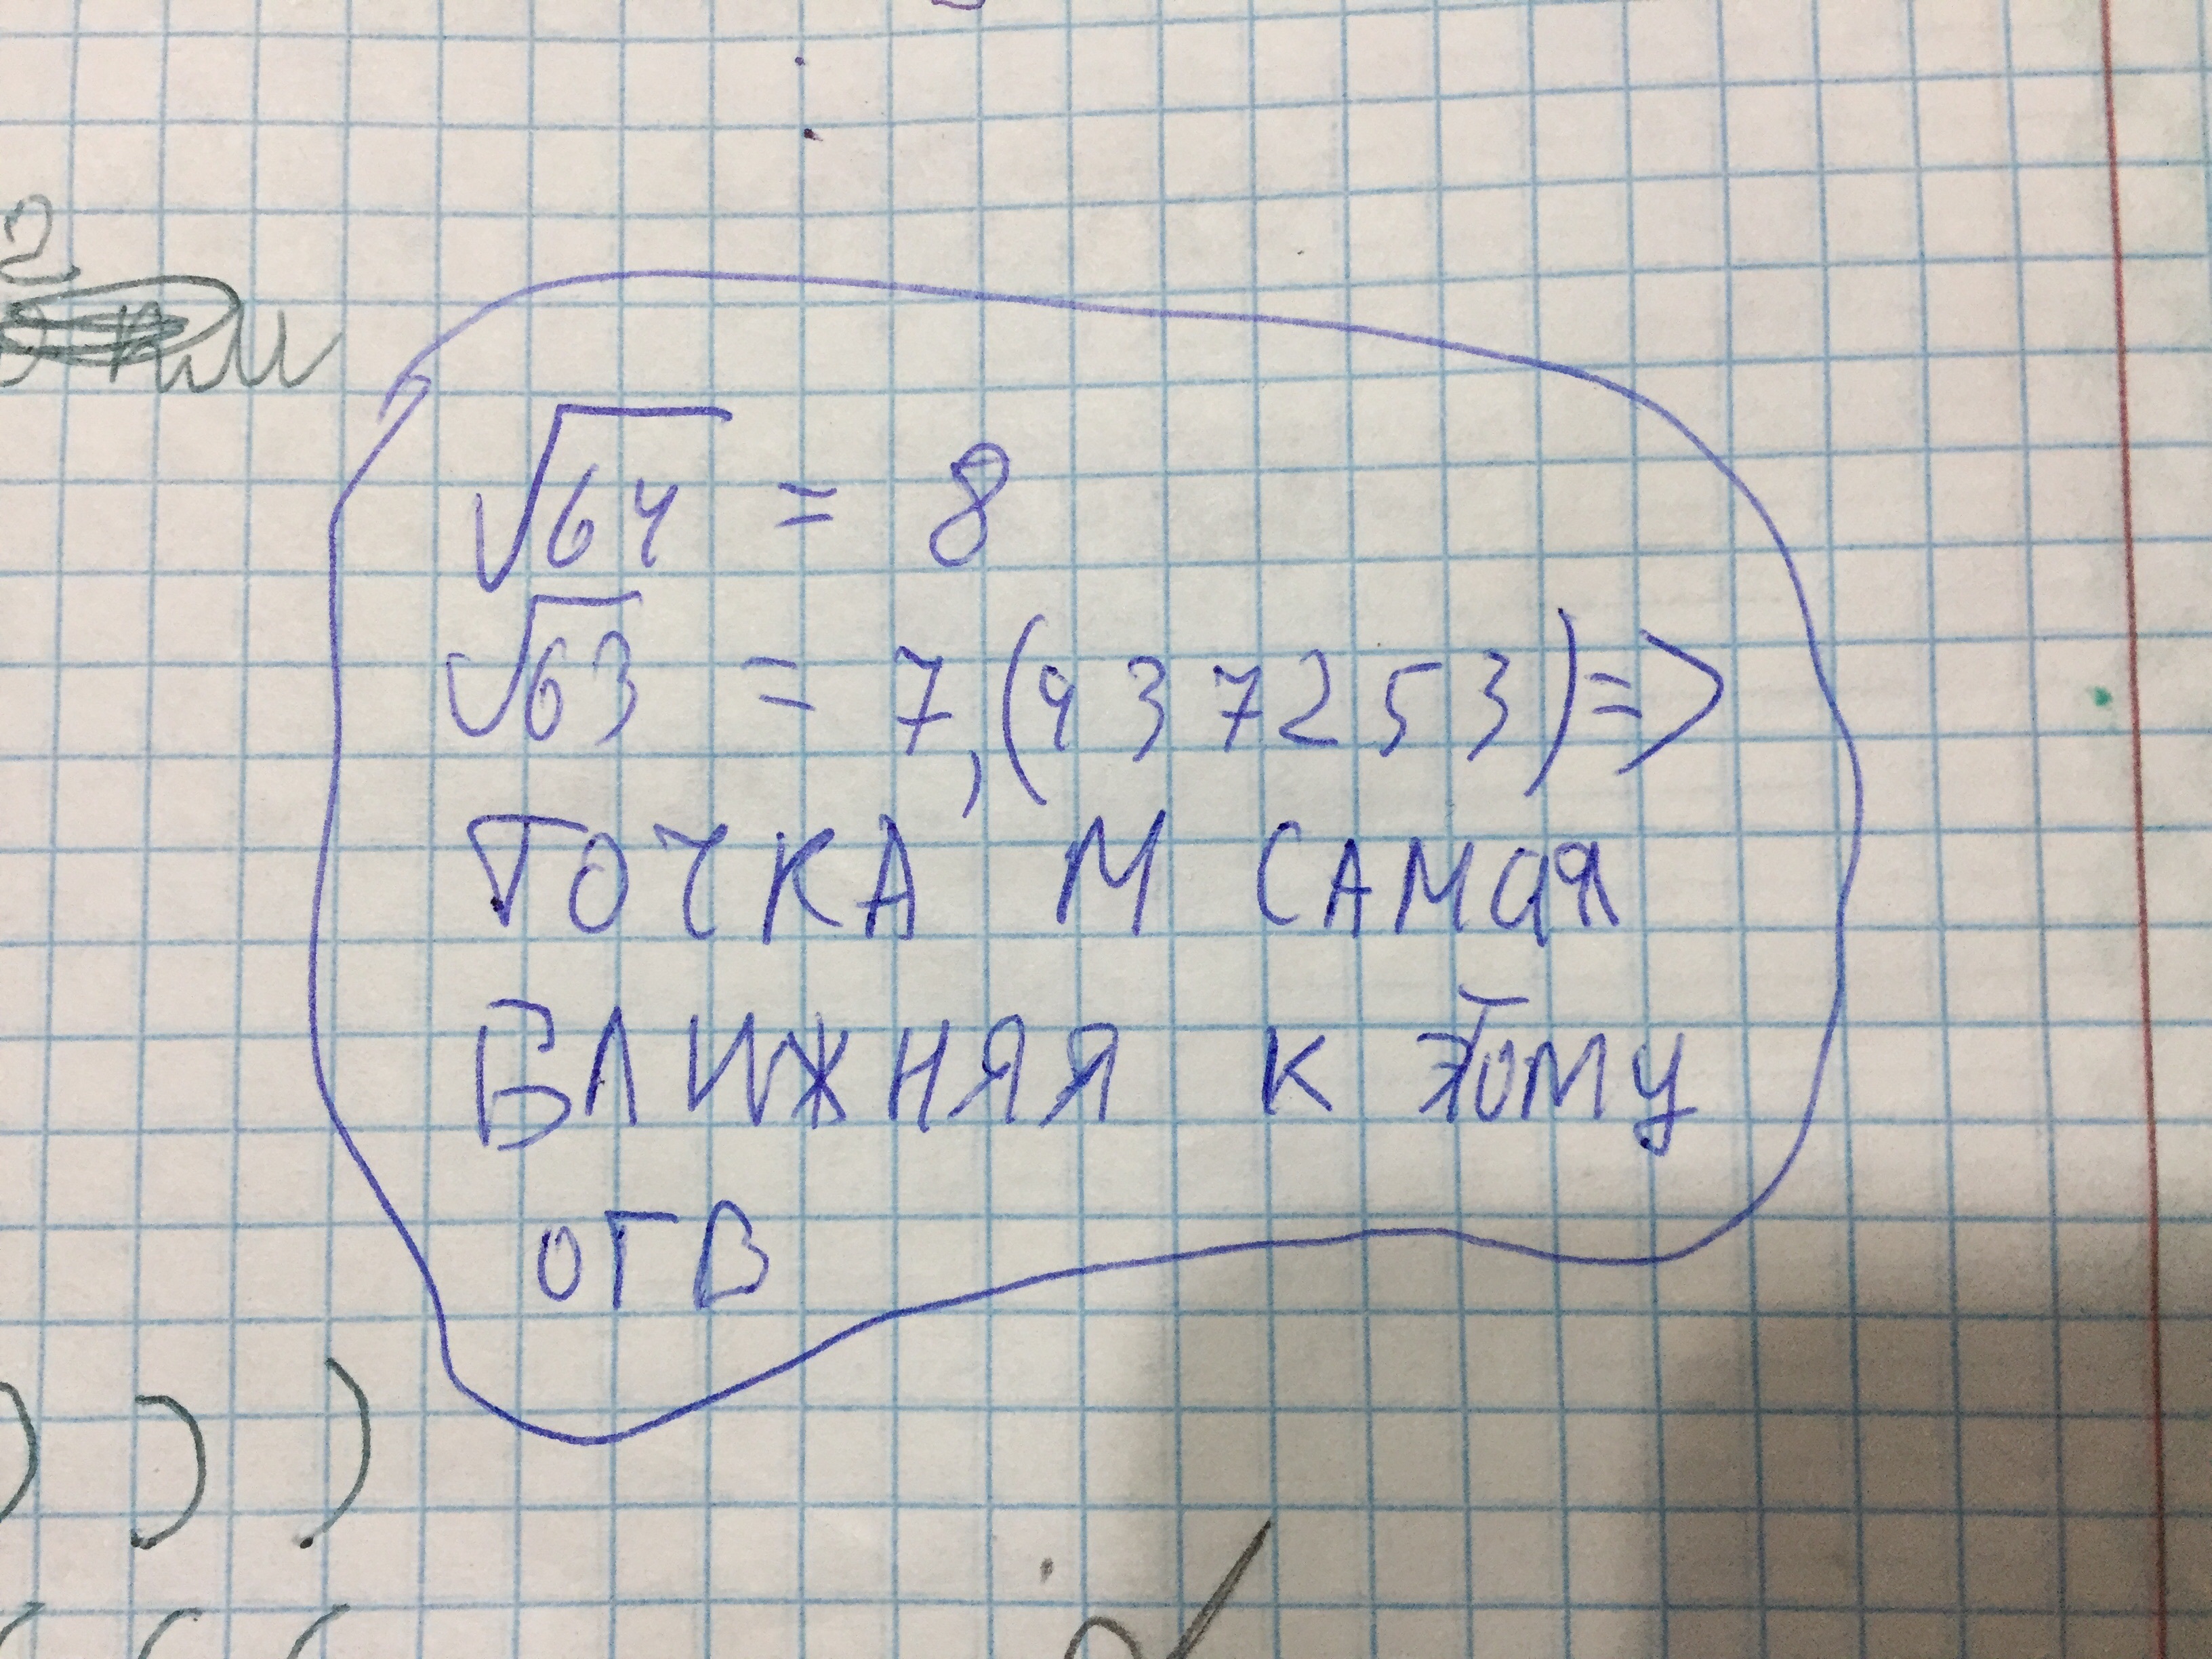 √64 = 8
√63 = 7,(937253) =>
ТОЧКА М САМАЯ
БЛИЖНЯЯ К ЭТОМУ
ОТВ